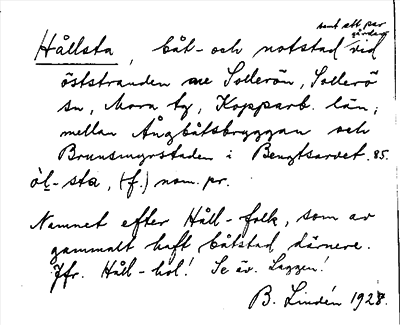 samt ett par
gårdar
Hållsta, båt- och notstad vid
öststranden av Sollerön, Sollerö
sn, Mora tg, Kopparb. län,
mellan Ångbåtsbryggan och
Brunsmyrstaden i Bengtsarvet. 85.
ól-sta, (f.) nom. pr.
Namnet efter Håll-folk, som av
gammalt haft båtstad därnere.
Jfr. Håll-hol! Se äv. Laggen!
B. Lindén 1928.